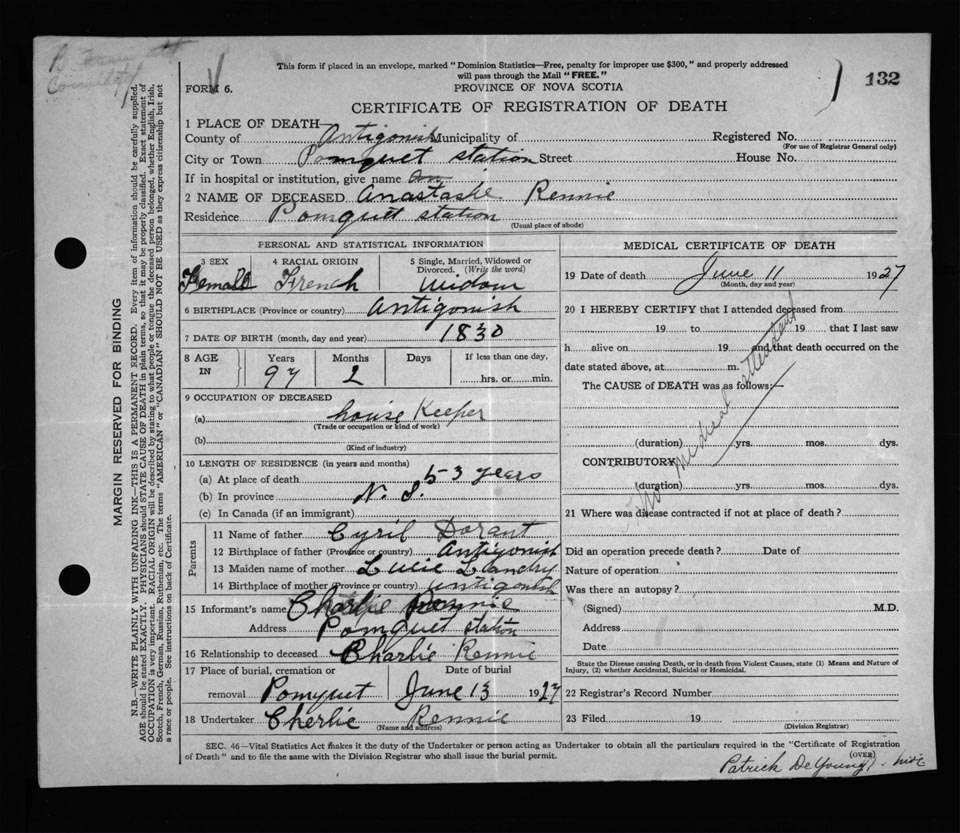 This form if placed in an envelope, marked "Dominion Statistics—Free, penalty for improper use $300," and properly addressed
will pass through the Mail "FREE."
FORM 6.
PROVINCE OF NOVA SCOTIA
132
CERTIFICATE OF REGISTRATION OF DEATH
1 PLACE OF DEATH
County of Antigonish Municipality of
Registered No.
(For use of Registrar General only)
City or Town Pomquet station Street House No.
If in hospital or institution, give name
2 NAME OF DECEASED Anastasie Rennie
Residence Pomquet station
(Usual place of abode)
PERSONAL AND STATISTICAL INFORMATION
3 SEX 4 RACIAL ORIGIN 5 Single, Married, Widowed or Divorced. (Write the word)
Female French widow
6 BIRTHPLACE (Province or country) Antigonish
7 DATE OF BIRTH (month, day and year) 1830
8 AGE IN Years Months Days If less than one day,
97 2 hrs. or min.
9 OCCUPATION OF DECEASED
(a) house Keeper
(Trade or occupation or kind of work)
(b)
(Kind of industry)
10 LENGTH OF RESIDENCE (in years and months)
(a) At place of death 53 years
(b) In province N. S.
(c) In Canada (if an immigrant)
Parents
11 Name of father Cyril Dorant
12 Birthplace of father (Province or country) Antigonish
13 Maiden name of mother Lucie Landry
14 Birthplace of mother (Province or country) Antigonish
15 Informant's name Charlie Rennie
Address Pomquet station
16 Relationship to deceased Charlie Rennie
17 Place of burial, cremation or removal Pomquet
Date of burial June 13 1927
18 Undertaker Cherlie Rennie
(Name and address)
MEDICAL CERTIFICATE OF DEATH
19 Date of death June 11 1927
(Month, day and year)
20 I HEREBY CERTIFY that I attended deceased from
19 to 19 that I last saw
h alive on 19 and that death occurred on the
date stated above, at m.
The CAUSE of DEATH was as follows:—
No medical attendant
(duration) yrs. mos. dys.
CONTRIBUTORY
(duration) yrs. mos. dys.
21 Where was disease contracted if not at place of death?
Did an operation precede death? Date of
Nature of operation
Was there an autopsy?
(Signed) M.D.
Address
Date
State the Disease causing Death, or in death from Violent Causes, state (1) Means and Nature of
Injury, (2) whether Accidental, Suicidal or Homicidal.
22 Registrar's Record Number
23 Filed 19
(Division Registrar)
SEC. 46—Vital Statistics Act makes it the duty of the Undertaker or person acting as Undertaker to obtain all the particulars required in the "Certificate of Registration
of Death" and to file the same with the Division Registrar who shall issue the burial permit.
(OVER)
Patrick DeYoung
MARGIN RESERVED FOR BINDING
N.B.—WRITE PLAINLY WITH UNFADING INK—THIS IS A PERMANENT RECORD. Every item of information should be carefully supplied.
AGE should be stated EXACTLY. PHYSICIANS should STATE CAUSE OF DEATH in plain terms, so that it may be properly classified. Exact statement of
OCCUPATION is very important. RACIAL ORIGIN will be described by stating to what people or tongue the deceased person belonged, whether English, Irish,
Scotch, French, German, Russian, Ruthenian, etc. The terms "AMERICAN" or "CANADIAN" SHOULD NOT BE USED as they express citizenship but not
a race or people. See instructions on back of Certificate.